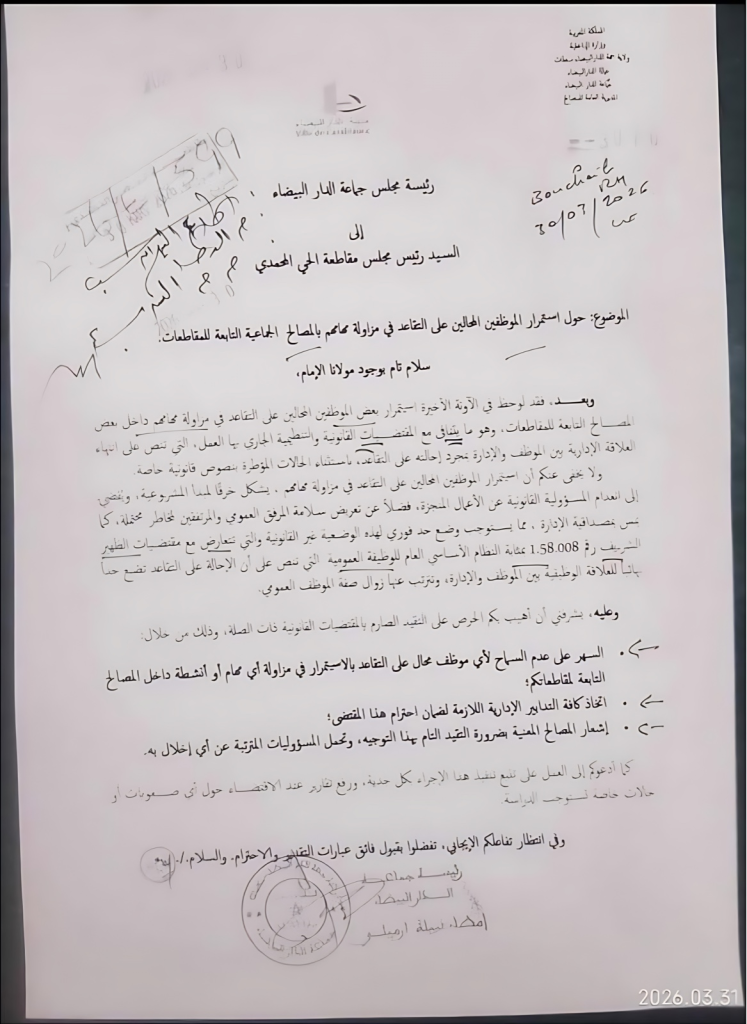 المملكة المغربية
وزارة الداخلية
ولاية جهة الدار البيضاء سطات
عمالة الدار البيضاء
جماعة الدار البيضاء
المديرية العامة للمصالح
Ville de Casablanca
30/03/2026
رئيسة مجلس جماعة الدار البيضاء
إلى
السيد رئيس مجلس مقاطعة الحي المحمدي
الموضوع: حول استمرار الموظفين المحالين على التقاعد في مزاولة مهامهم بالمصالح الجماعية التابعة للمقاطعات.
سلام تام بوجود مولانا الإمام،
وبعـــد، فقد لوحظ في الآونة الأخيرة استمرار بعض الموظفين المحالين على التقاعد في مزاولة مهامهم داخل بعض
المصالح التابعة للمقاطعات، وهو ما يتنافى مع المقتضيات القانونية والتنظيمية الجاري بها العمل، التي تنص على انتهاء
العلاقة الإدارية بين الموظف والإدارة بمجرد إحالته على التقاعد، باستثناء الحالات المؤطرة بنصوص قانونية خاصة.
ولا يخفى عنكم أن استمرار الموظفين المحالين على التقاعد في مزاولة مهامهم ، يشكل خرقًا لمبدأ المشروعية، ويفضي
إلى انعدام المسؤولية القانونية عن الأعمال المنجزة، فضلاً عن تعريض سلامة المرفق العمومي والمرتفقين لمخاطر محتملة، كما
يمس بمصداقية الإدارة ، مما يستوجب وضع حد فوري لهذه الوضعية غير القانونية والتي تتعارض مع مقتضيات الظهير
الشريف رقم 1.58.008 بمثابة النظام الأساسي العام للوظيفة العمومية التي تنص على أن الإحالة على التقاعد تضع حداً
نهائياً للعلاقة الوظيفية بين الموظف والإدارة، وتترتب عنها زوال صفة الموظف العمومي.
وعليه، يشرفني أن أهيب بكم الحرص على التقيد الصارم بالمقتضيات القانونية ذات الصلة، وذلك من خلال:
• السهر على عدم السماح لأي موظف محال على التقاعد بالاستمرار في مزاولة أي مهام أو أنشطة داخل المصالح
التابعة لمقاطعاتكم؛
• اتخاذ كافة التدابير الإدارية اللازمة لضمان احترام هذا المقتضى؛
• إشعار المصالح المعنية بضرورة التقيد التام بهذا التوجيه، وتحمل المسؤوليات المترتبة عن أي إخلال به.
كما أدعوكم إلى العمل على تتبع تنفيذ هذا الإجراء بكل جدية، ورفع تقارير عند الاقتضاء حول أي صعوبات أو
حالات خاصة تستوجب الدراسة.
وفي انتظار تفاعلكم الإيجابي، تفضلوا بقبول فائق عبارات التقدير والاحترام. والسلام./.
رئيسة جماعة
الدار البيضاء
إمضاء: نبيلة ارميلي
2026.03.31